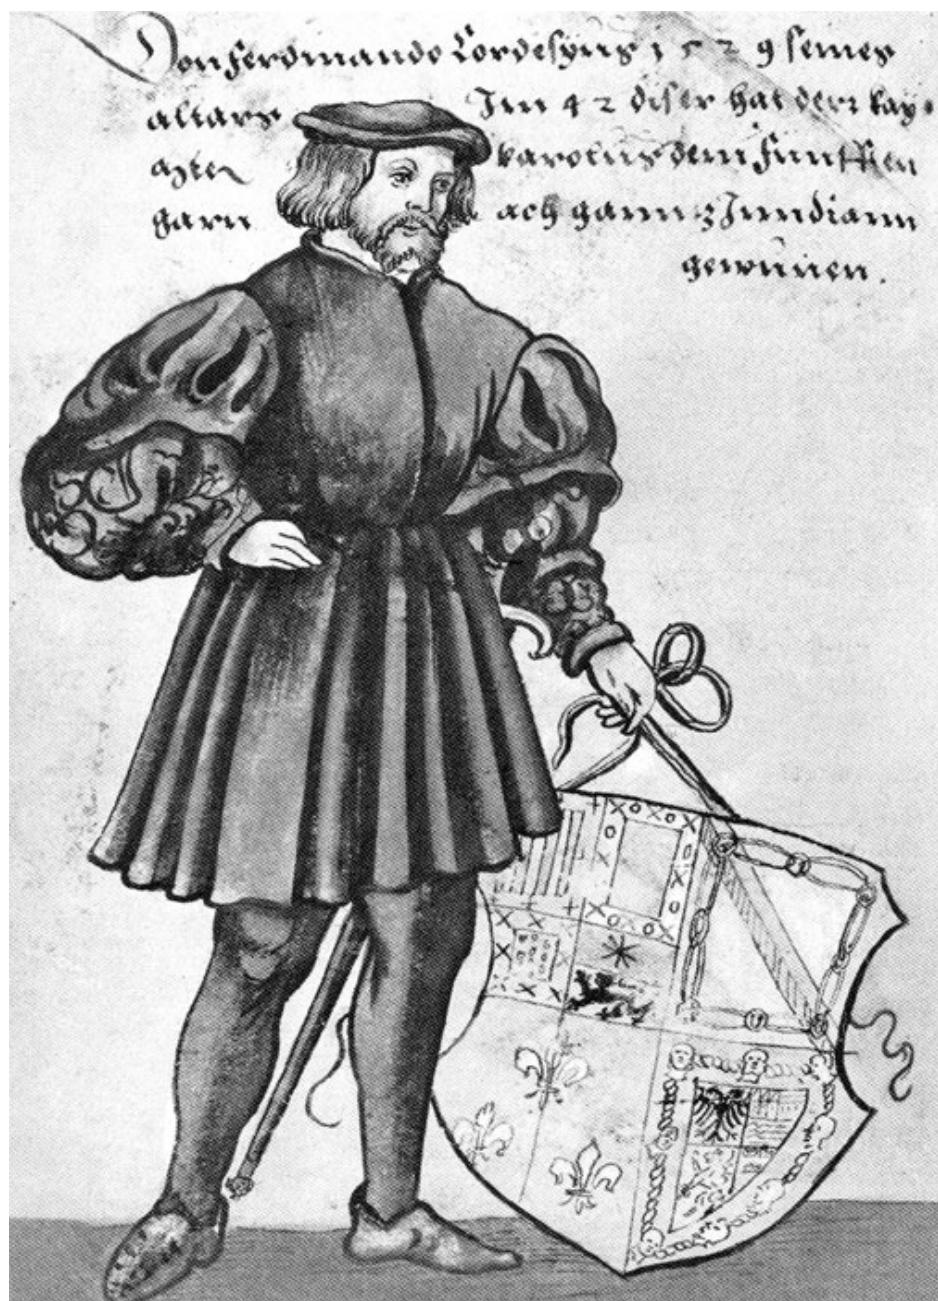 Don ferdinando Cordesyus 1529 seines
altars Im 42 diser hat derr kay.
karolus dem funfften
ach gannz Inndiann
gewunen.